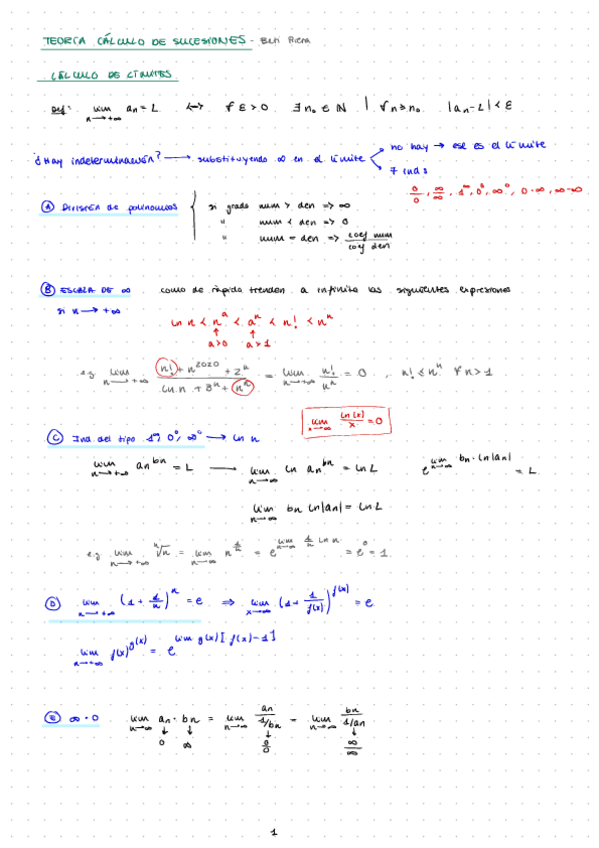 TEORÍA CÁLCULO DE SUCESIONES - Beti Riera
CÁLCULO DE LÍMITES
Def: lim n→+∞ an = L ↔ ∀ ε > 0 ∃ n₀ ∈ ℕ | ∀ n ≥ n₀ |an - L| < ε
¿Hay indeterminación? → substituyendo ∞ en el límite
no hay → ese es el límite
7 inds
0/0, ∞/∞, 1^∞, 0^0, ∞^0, 0·∞, ∞-∞
A División de polinomios { si grado num > den => ∞
" num < den => 0
" num = den => coef num / coef den
B ESCALA DE ∞ como de rápida tienden a infinito las siguientes expresiones
si n → +∞
ln n < n^a < a^n < n! < n^n
a>0 a>1
e.g. lim n→+∞ (n! + n^2020 + 2^n) / (ln n + 8^n + n^n) = lim n→+∞ n!/n^n = 0 n! ≤ n^n ∀ n > 1
lim x→∞ ln(x)/x = 0
C Ind. del tipo 1^∞, 0^0, ∞^0 → ln n
lim n→+∞ an^bn = L → lim n→∞ ln an^bn = ln L e^(lim n→∞ bn · ln|an|) = L
lim n→∞ bn ln|an| = ln L
e.g. lim n→+∞ ⁿ√n = lim n→∞ n^(1/n) = e^(lim n→∞ 1/n ln n) = e^0 = 1
D lim n→+∞ (1 + 1/n)^n = e ⇒ lim x→∞ (1 + 1/f(x))^f(x) = e
lim x→+∞ f(x)^g(x) = e^(lim g(x)[f(x)-1])
E ∞·0 lim n→∞ an · bn = lim n→∞ an / (1/bn) = lim n→∞ bn / (1/an)
↓ ↓ ↓ ↓
0 ∞ 0/0 ∞/∞
1